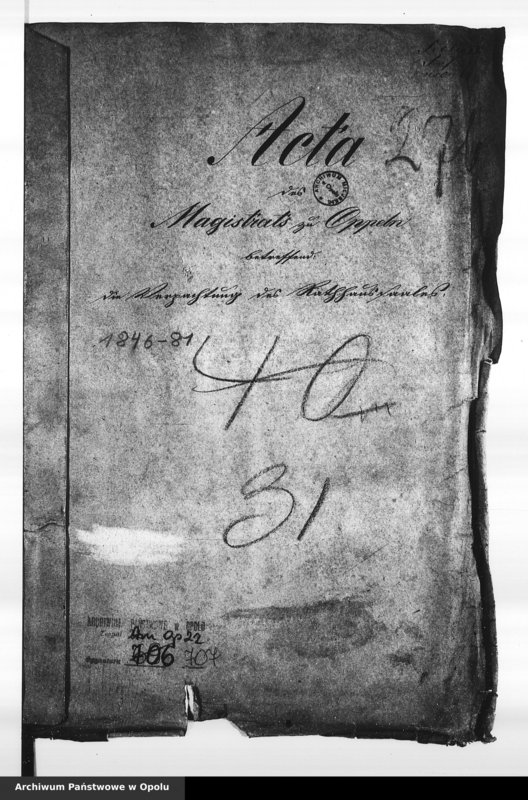 Acta
274
des
Magistrats zu Oppeln
betreffend:
die Verpachtung des Rathhaussaales.
1846-81
40
31
ARCHIWUM PAŃSTWOWE w OPOLU
Zespół Am Op 22
Sygnatura 706 707
Archiwum Państwowe w Opolu